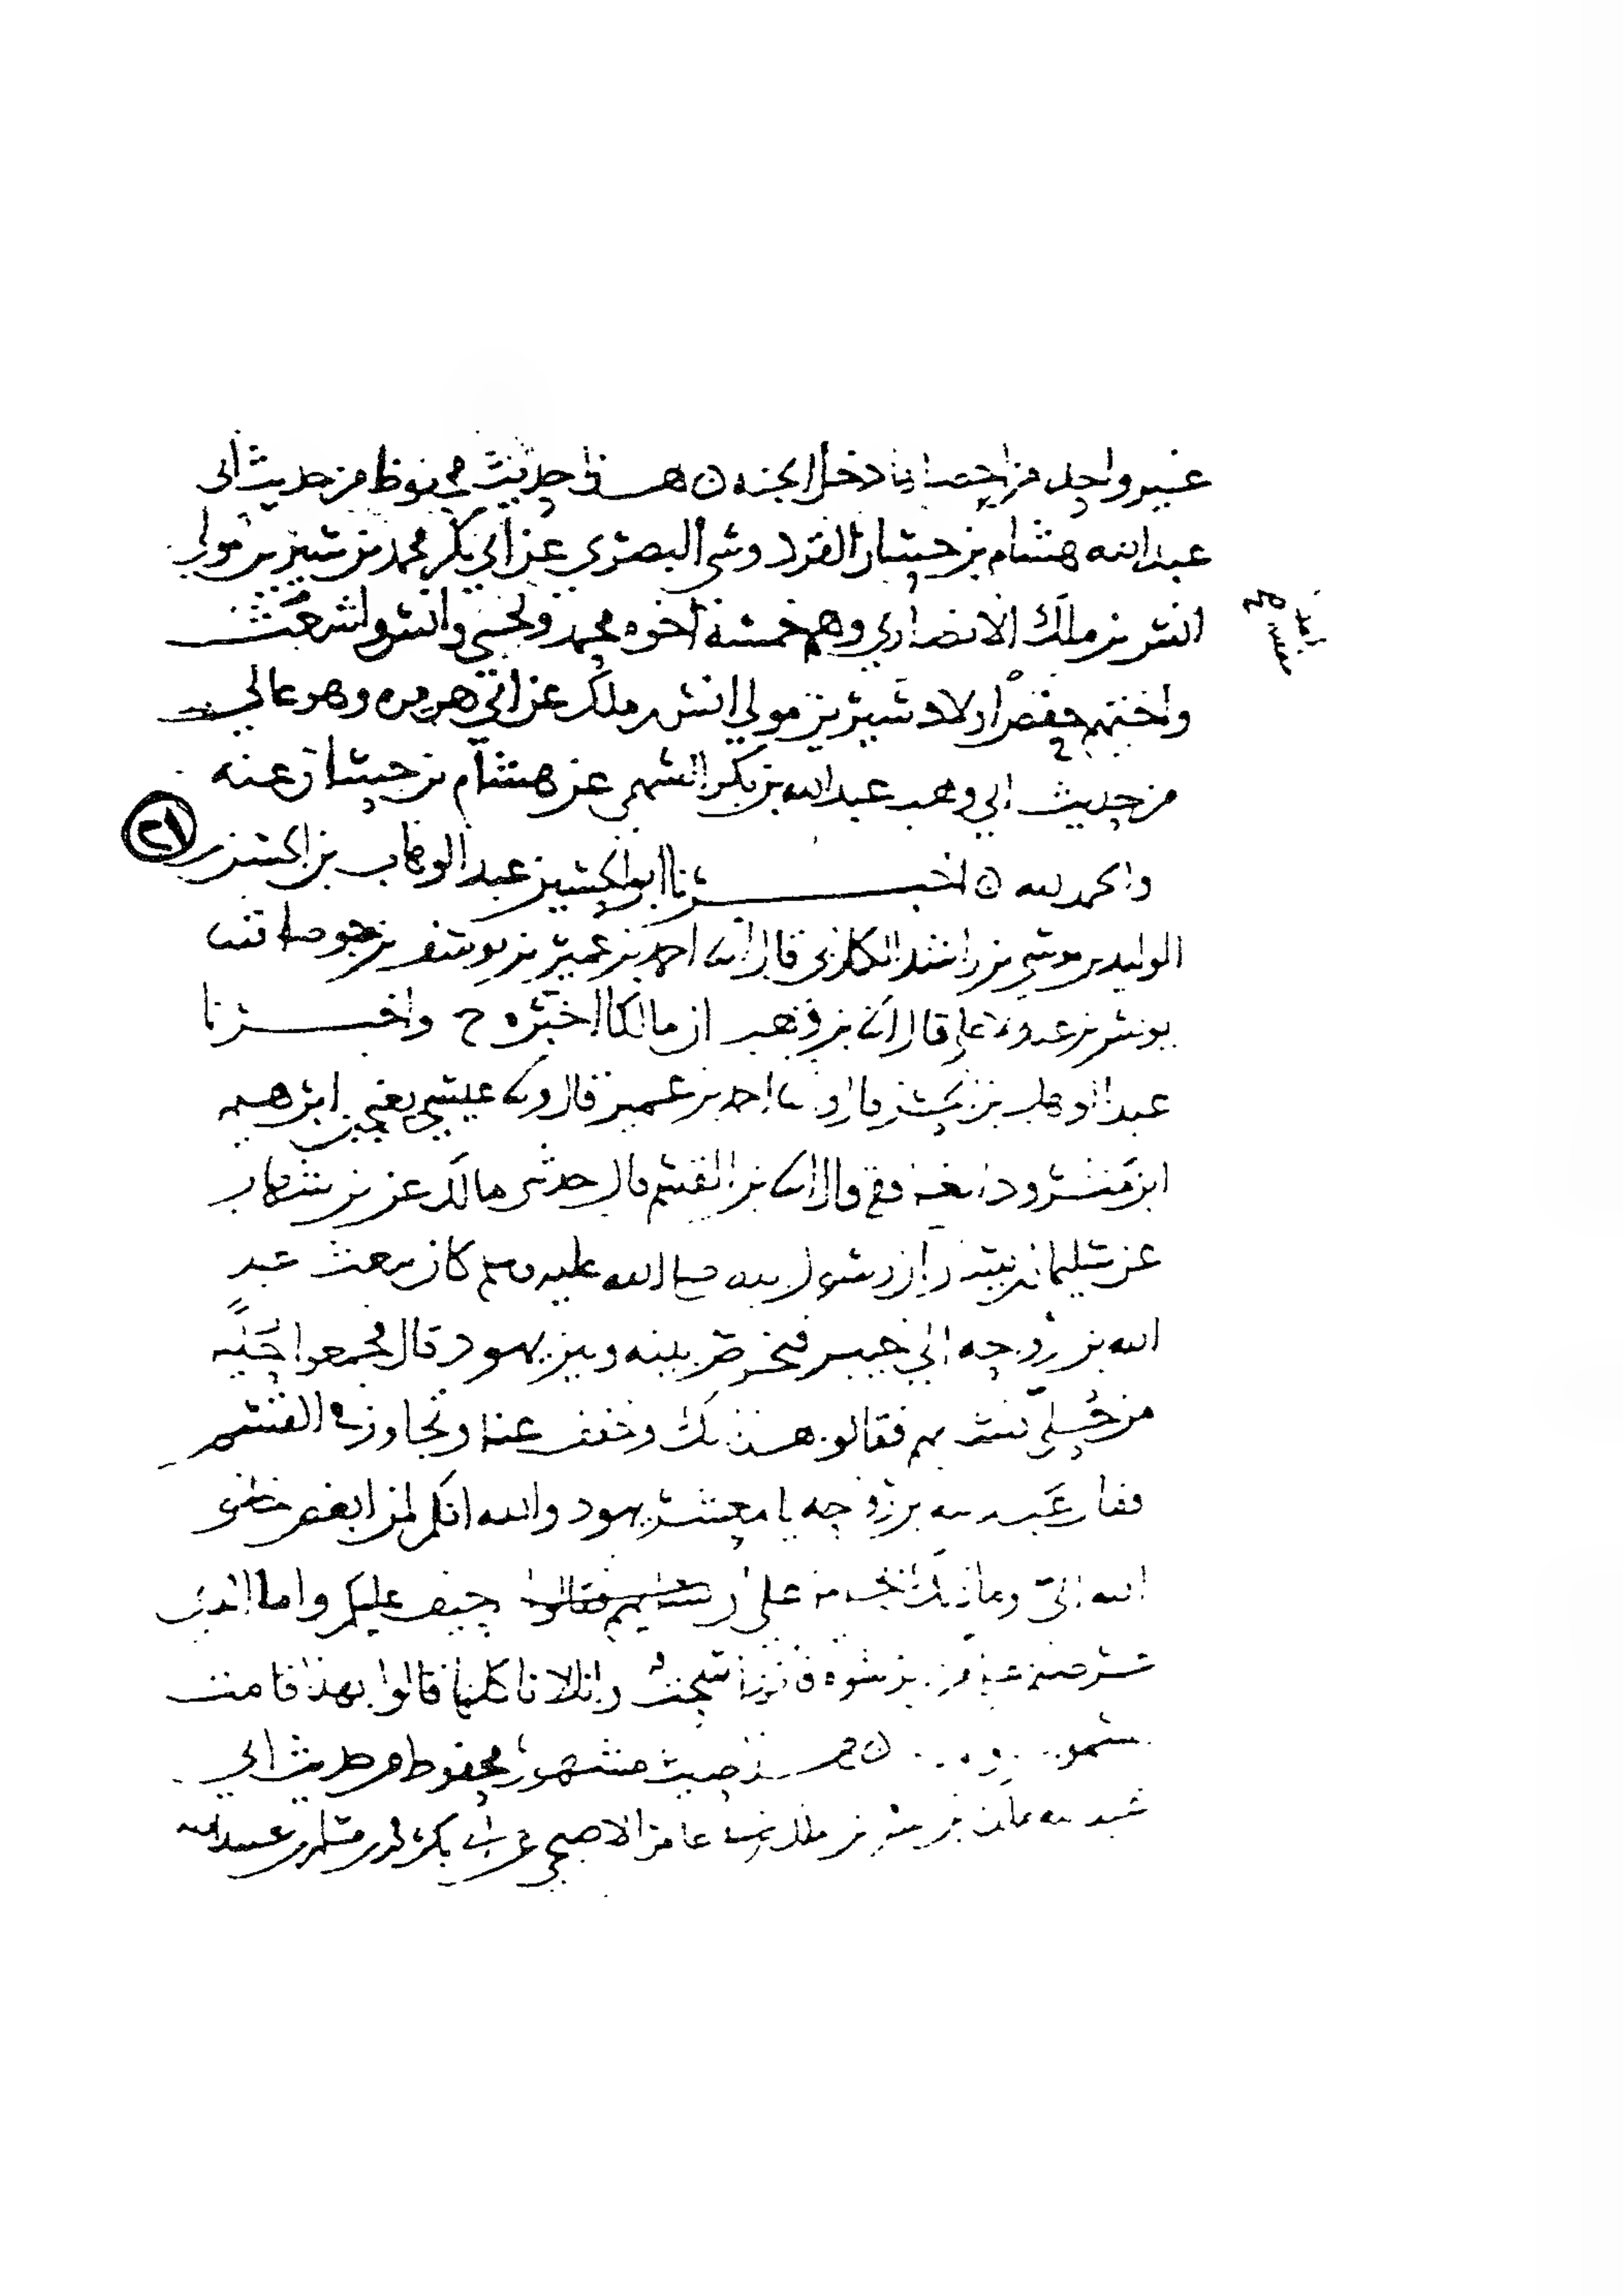 غير واحد من احصاها دخل الجنه ن هذا حديث محفوظ من حديث ابى
عبد الله هشام بن حسان القردوسي البصري عن ابي بكر محمد بن سيرين مولى
انس بن ملك الانصاري وهم خمسة اخوه محمد ويحيى وانس واشعث
واختهم حفصه اولاد سيرين مولى انس بن ملك عن ابي هريره وهو عالي
من حديث ابي وهب عبد الله بن بكر السهمي عن هشام بن حسان عنه
والحمد لله ن اخبرنا ابو الحسين عبد الوهاب بن الحسن بن
٢١
الوليد بن موسى بن راشد الكلابي قال انا احمد بن عمير بن يوسف بن جوصا ثنا
يونس بن عبد الاعلى قال انا بن وهب ان مالكا اخبره ح واخبرنا
عبد الوهاب بن الحسن قال انا احمد بن عمير قال ونا عيسى يعني بن ابرهيم
ابن مثرود الغافقي قال انا بن القسم قال حدثنى مالك عن بن شهاب
عن سليمان بن يسار ان رسول الله صلى الله عليه وسلم كان يبعث عبد
الله بن رواحه الى خيبر فيخرص بينه وبين يهود قال فجمعوا حليه
من حلي نسائهم فقالوا هذا لك وخفف عنا وتجاوز في القسم
فقال عبد الله بن رواحه يا معشر يهود والله انكم لمن ابغض خلق
الله الي وما ذلك بحاملي على ان احيف عليكم واما الذي
عرضتم من الرشوه فانها سحت وانا لا ناكلها قالوا بهذا قامت
السموات والارض ن هذا حديث مشهور محفوظ من حديث ابي
عبد الله ملك بن انس بن ملك بن ابي عامر الاصبحي عن ابي بكر محمد بن مسلم بن عبيد الله